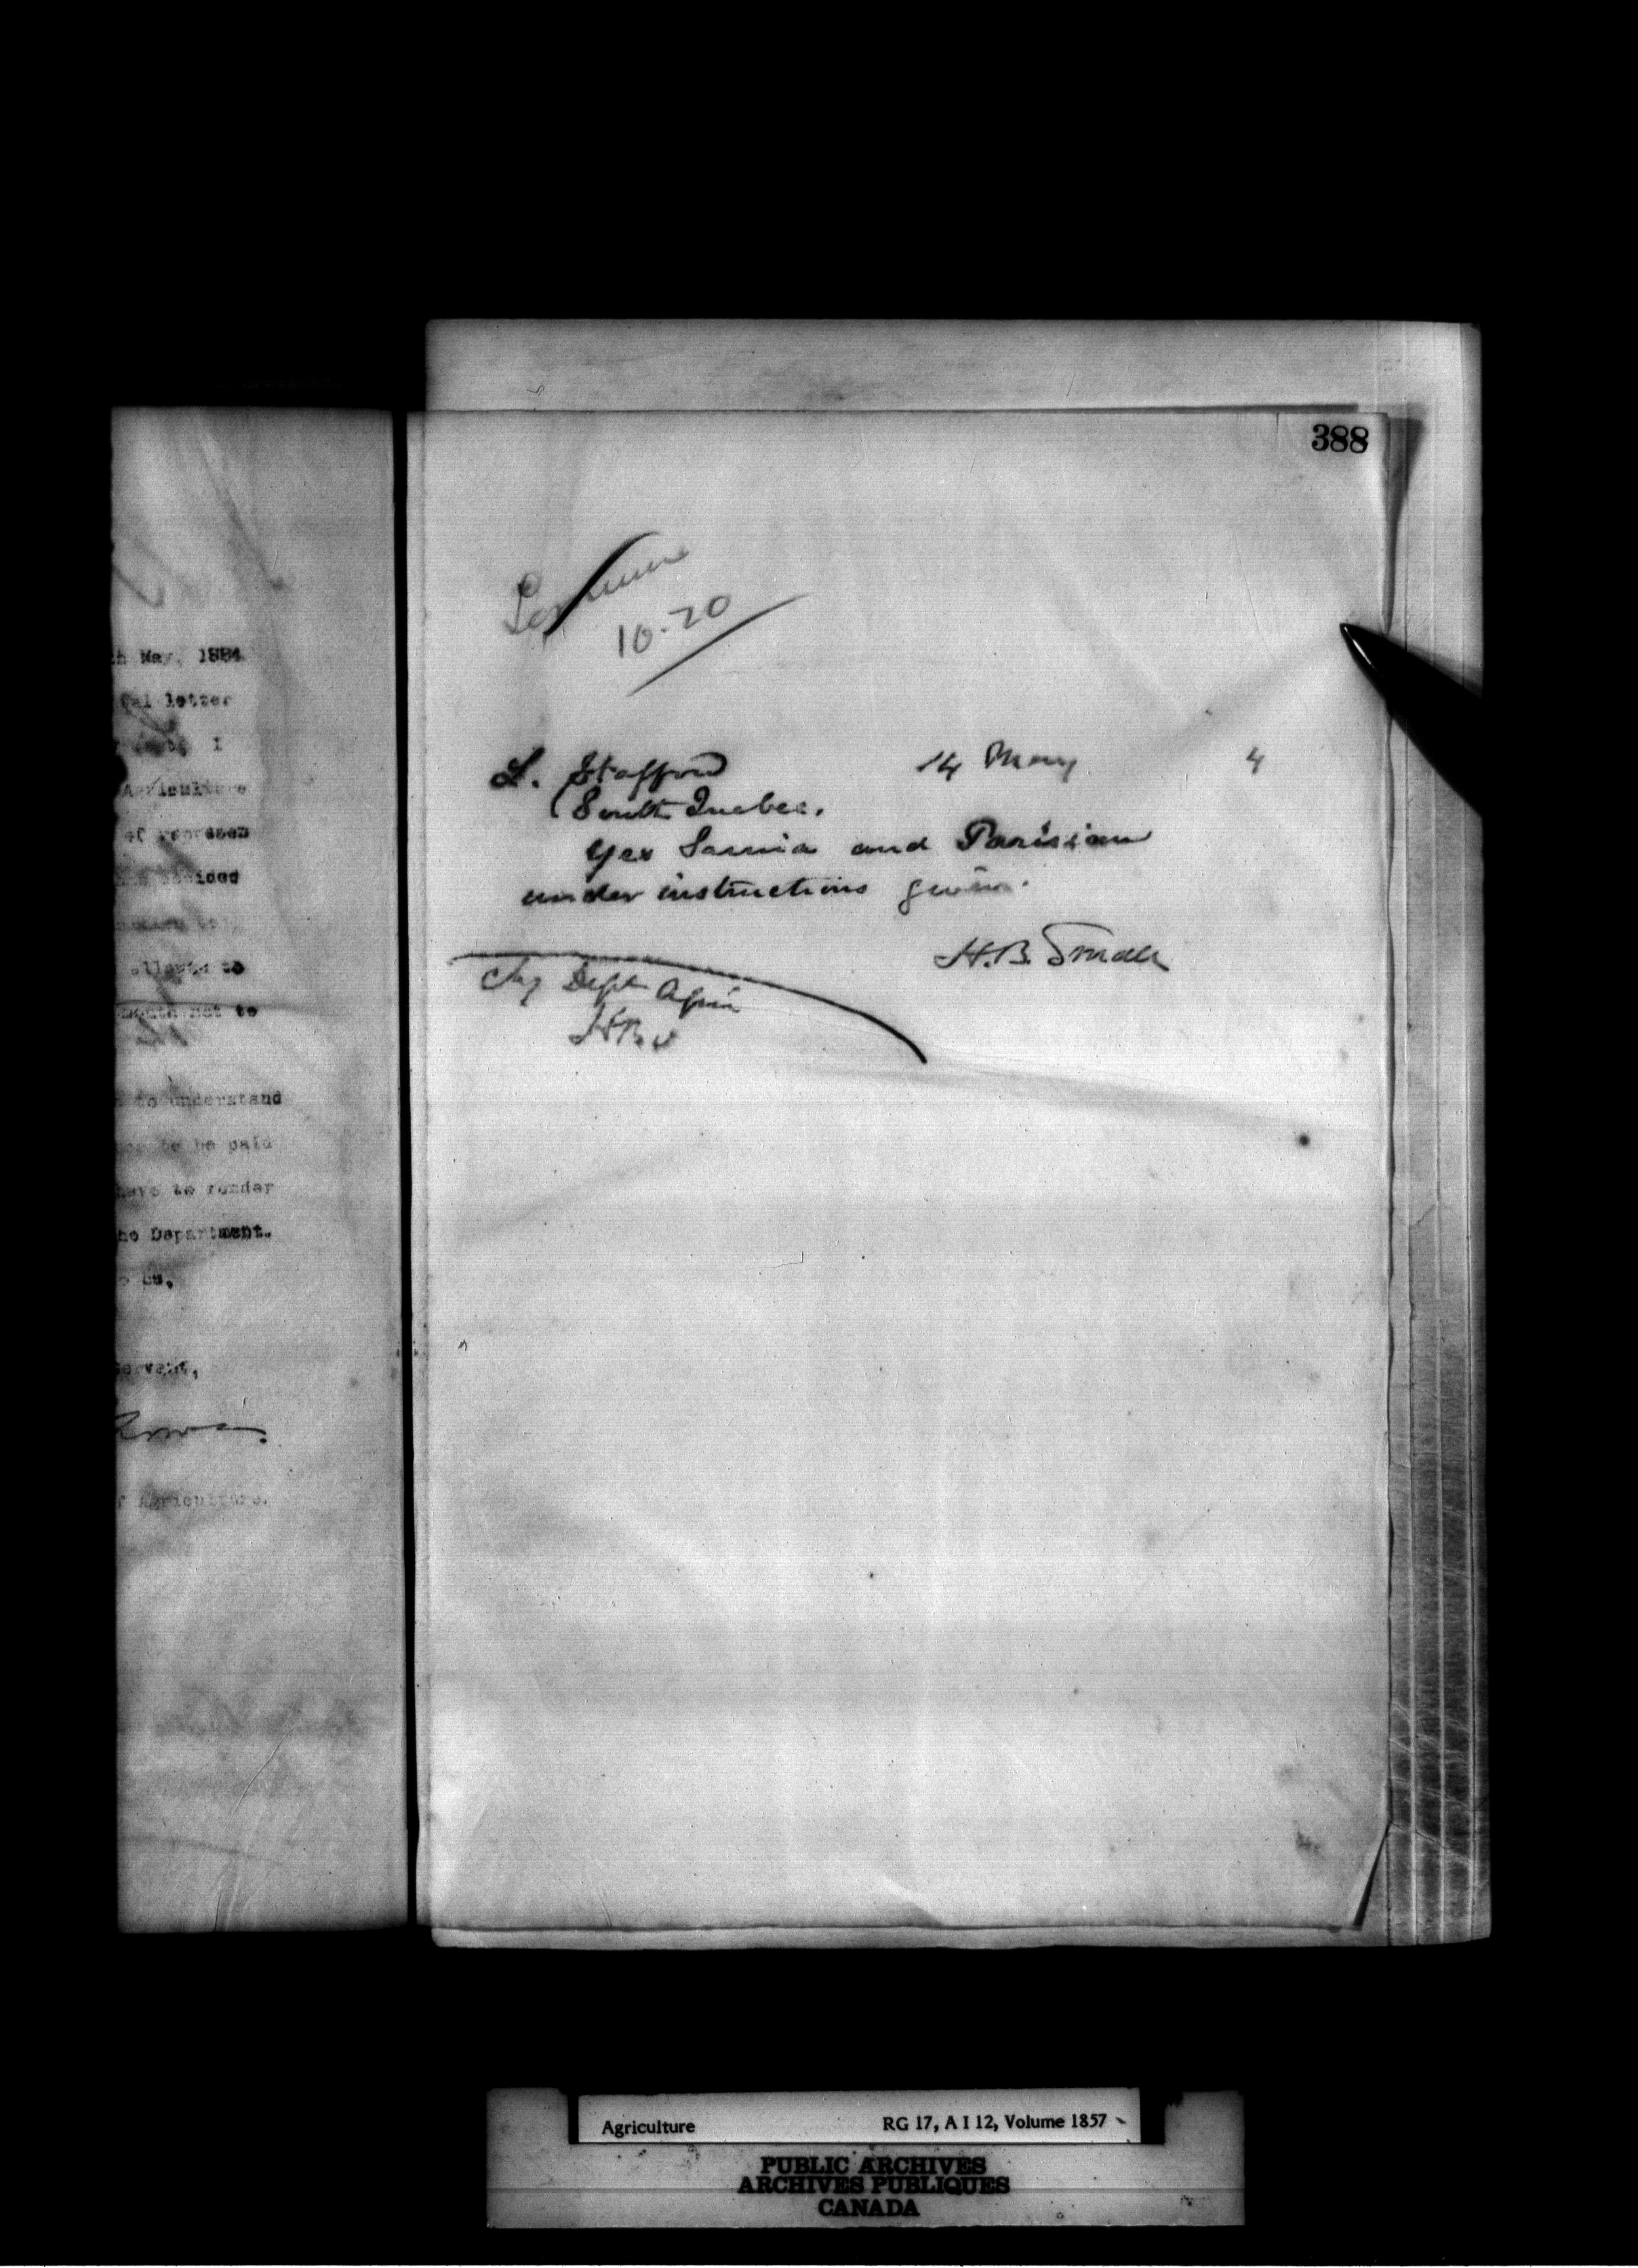 388
10.20
L. Stafford 14 May 4
South Quebec.
Yes Sarnia and Parisian
under instructions given.
H.B. Small
Chg Dept Agric
H.B.S
h May, 1884
letter
I
Agriculture
of
to
not to
to understand
be paid
have to render
he Department.
Servant,
Agriculture.
Agriculture RG 17, A I 12, Volume 1857
PUBLIC ARCHIVES
ARCHIVES PUBLIQUES
CANADA